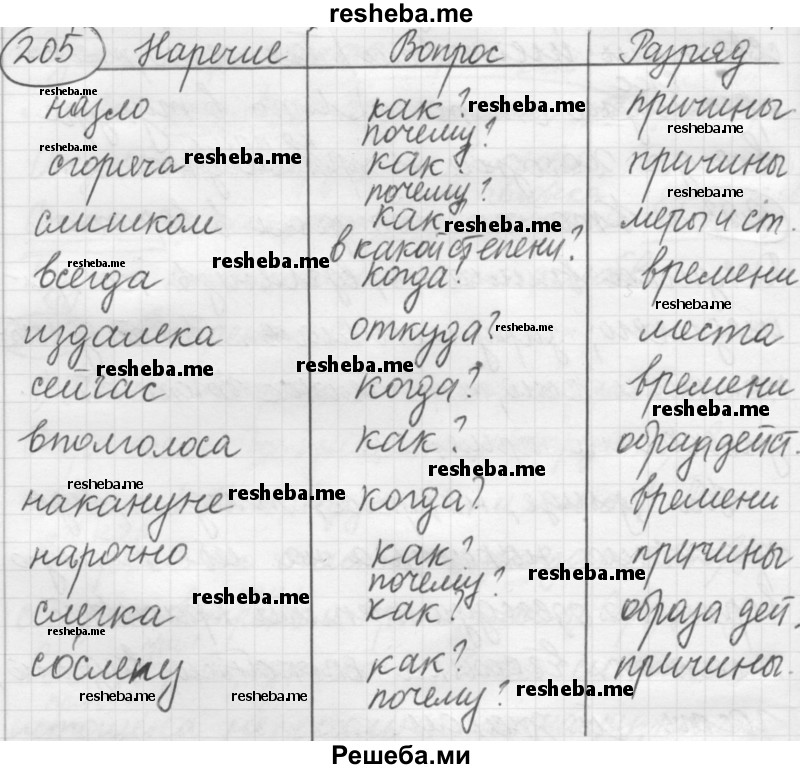 resheba.me
205 Наречие Вопрос Разряд
resheba.me
назло как? resheba.me причины
почему? resheba.me
resheba.me
сгоряча resheba.me как? причины
почему? resheba.me
слишком как resheba.me меры и ст.
resheba.me в какой степени?
всегда resheba.me когда? времени
resheba.me
издалека откуда? resheba.me места
resheba.me resheba.me
сейчас когда? времени
resheba.me
вполголоса как? образа дейст.
resheba.me
resheba.me
накануне resheba.me когда? времени
нарочно как? причины
почему? resheba.me
слегка resheba.me как? образа дей.
resheba.me
сослепу как? причины.
resheba.me resheba.me почему? resheba.me
Решеба.ми